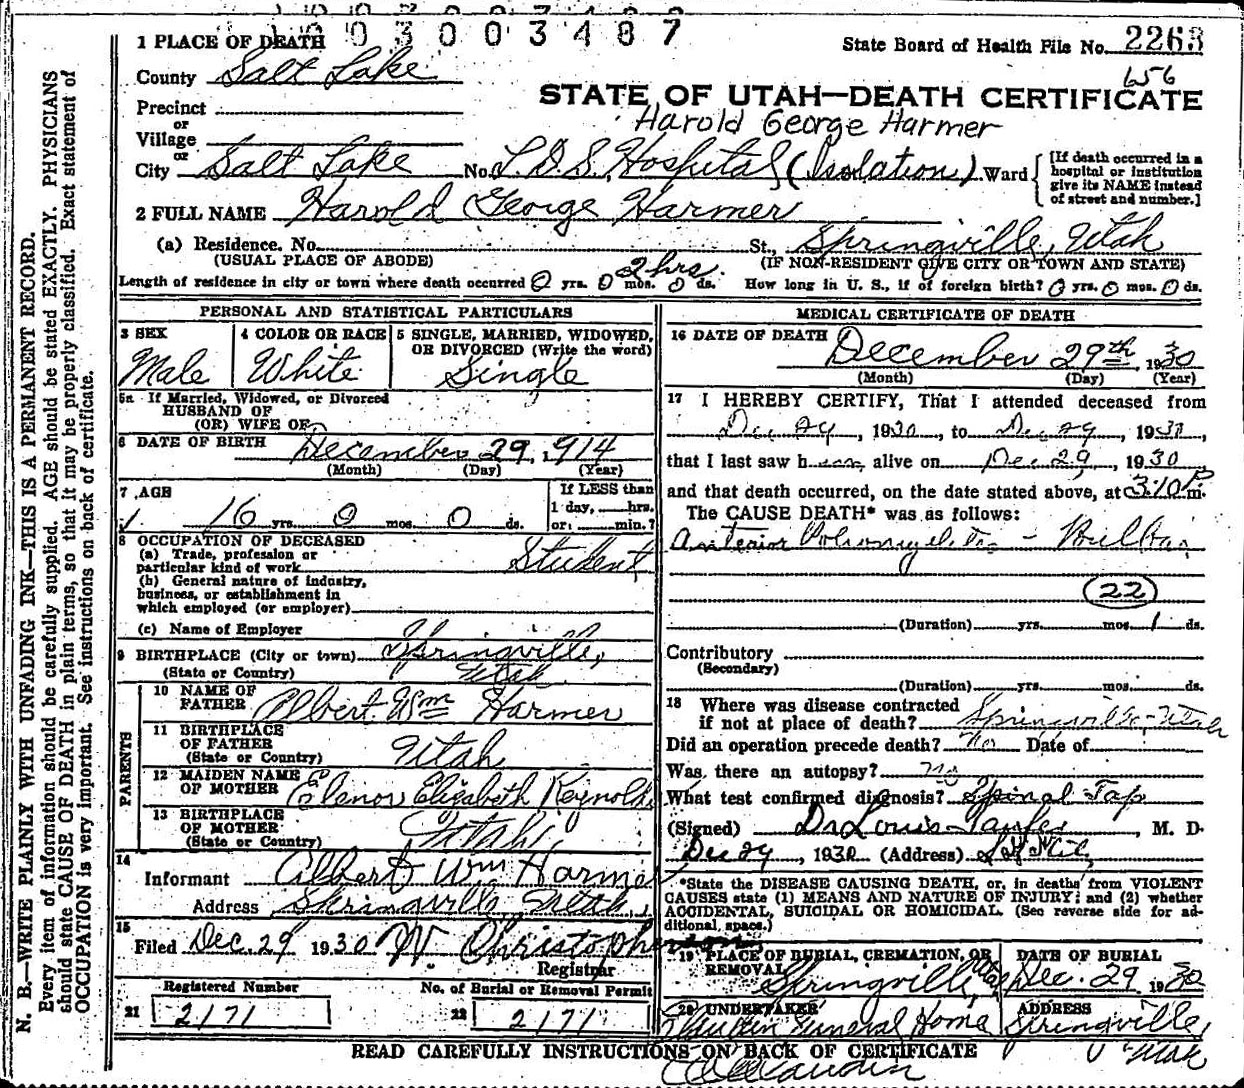 0 0 3 0 0 3 4 8 7
1 PLACE OF DEATH
State Board of Health File No. 2263
656
County Salt Lake
STATE OF UTAH—DEATH CERTIFICATE
Harold George Harmer
Precinct
or
Village
or
City Salt Lake No. L.D.S. Hospital (Isolation) Ward
[If death occurred in a
hospital or institution
give its NAME instead
of street and number.]
2 FULL NAME Harold George Harmer
(a) Residence. No. St., Springville, Utah
(USUAL PLACE OF ABODE) (IF NON-RESIDENT GIVE CITY OR TOWN AND STATE)
2 hrs.
Length of residence in city or town where death occurred 0 yrs. 0 mos. 0 ds. How long in U. S., if of foreign birth? 0 yrs. 0 mos. 0 ds.
PERSONAL AND STATISTICAL PARTICULARS
3 SEX
Male
4 COLOR OR RACE
White
5 SINGLE, MARRIED, WIDOWED,
OR DIVORCED (Write the word)
Single
5a If Married, Widowed, or Divorced
HUSBAND OF
(OR) WIFE OF
6 DATE OF BIRTH December 29, 1914
(Month) (Day) (Year)
7 AGE
16 yrs. 0 mos. 0 ds.
If LESS than
1 day, hrs.
or min.?
8 OCCUPATION OF DECEASED
(a) Trade, profession or
particular kind of work Student
(b) General nature of industry,
business, or establishment in
which employed (or employer)
(c) Name of Employer
9 BIRTHPLACE (City or town) Springville,
(State or Country) Utah
PARENTS
10 NAME OF
FATHER Albert Wm Harmer
11 BIRTHPLACE
OF FATHER
(State or Country) Utah
12 MAIDEN NAME
OF MOTHER Elenor Elizabeth Reynolds
13 BIRTHPLACE
OF MOTHER
(State or Country) Utah
14
Informant Albert Wm Harmer
Address Springville, Utah,
15
Filed Dec. 29 1930 W Christopherson
Registrar
Registered Number
21 2171
No. of Burial or Removal Permit
22 2171
MEDICAL CERTIFICATE OF DEATH
16 DATE OF DEATH
December 29th, 1930
(Month) (Day) (Year)
17 I HEREBY CERTIFY, That I attended deceased from
Dec 29, 1930, to Dec 29, 1930,
that I last saw h alive on Dec 29, 1930
and that death occurred, on the date stated above, at 3:10 P m.
The CAUSE DEATH* was as follows:
Anterior Poliomyelitis - Bulbar
22
(Duration) yrs. mos. 1 ds.
Contributory
(Secondary)
(Duration) yrs. mos. ds.
18 Where was disease contracted
if not at place of death? Springville, Utah
Did an operation precede death? No Date of
Was there an autopsy? no
What test confirmed diagnosis? Spinal Tap
(Signed) Dr Louis, M. D.
Dec 29, 1930 (Address)
*State the DISEASE CAUSING DEATH, or, in deaths from VIOLENT
CAUSES state (1) MEANS AND NATURE OF INJURY; and (2) whether
ACCIDENTAL, SUICIDAL OR HOMICIDAL. (See reverse side for ad-
ditional space.)
19 PLACE OF BURIAL, CREMATION, OR
REMOVAL
Springville, Utah
DATE OF BURIAL
Dec. 29 1930
20 UNDERTAKER
Funeral Home
ADDRESS
Springville,
Utah
READ CAREFULLY INSTRUCTIONS ON BACK OF CERTIFICATE
N. B.—WRITE PLAINLY WITH UNFADING INK—THIS IS A PERMANENT RECORD.
Every item of information should be carefully supplied. AGE should be stated EXACTLY. PHYSICIANS
should state CAUSE OF DEATH in plain terms, so that it may be properly classified. Exact statement of
OCCUPATION is very important. See instructions on back of certificate.